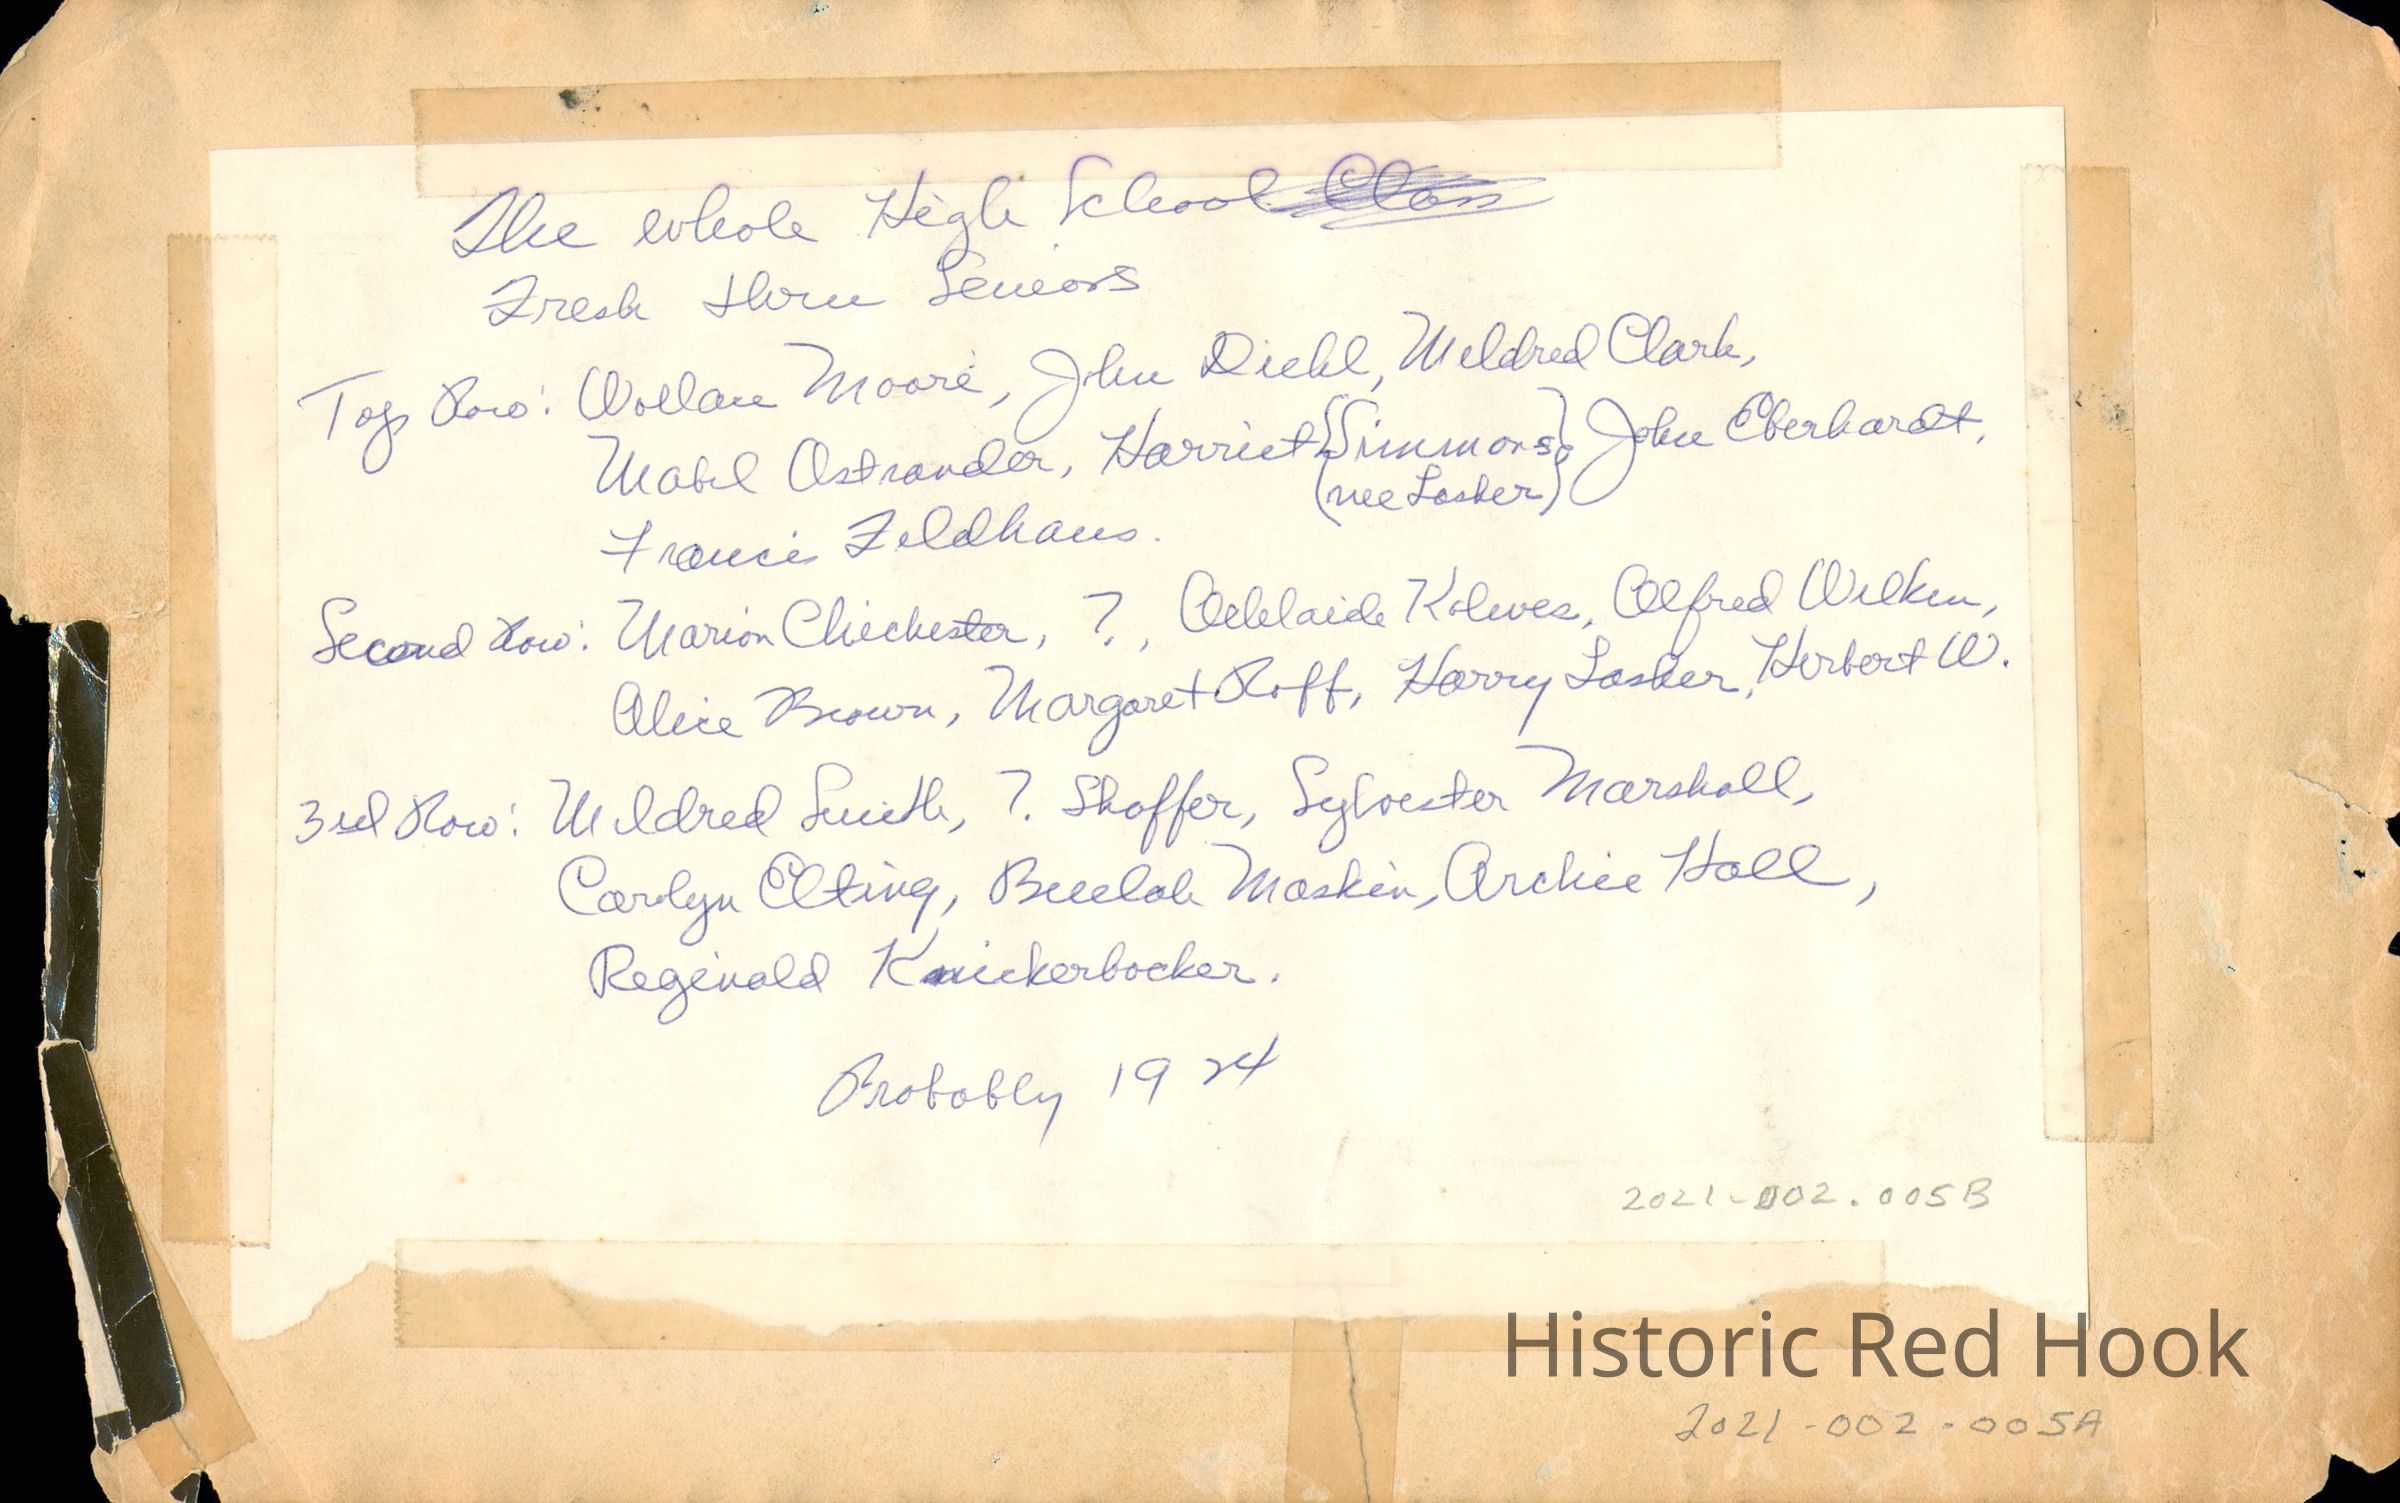 The whole High School Class
Fresh thru Seniors
Top Row: Wollam Moore, John Diehl, Mildred Clark,
Mabel Ostrander, Harriet {Simmons} John Eberhardt,
(nee Lasher)
Francis Feldhaus.
Second Row: Marion Chichester, ?, Adelaide Kolwes, Alfred Wilken,
Alice Brown, Margaret Roff, Harry Lasher, Herbert W.
3rd Row: Mildred Smith, ? Shaffer, Sylvester Marshall,
Carolyn Elting, Beulah Maskin, Archie Hall,
Reginald Knickerbocker.
Probably 1924
2021-002.005B
Historic Red Hook
2021-002-005A